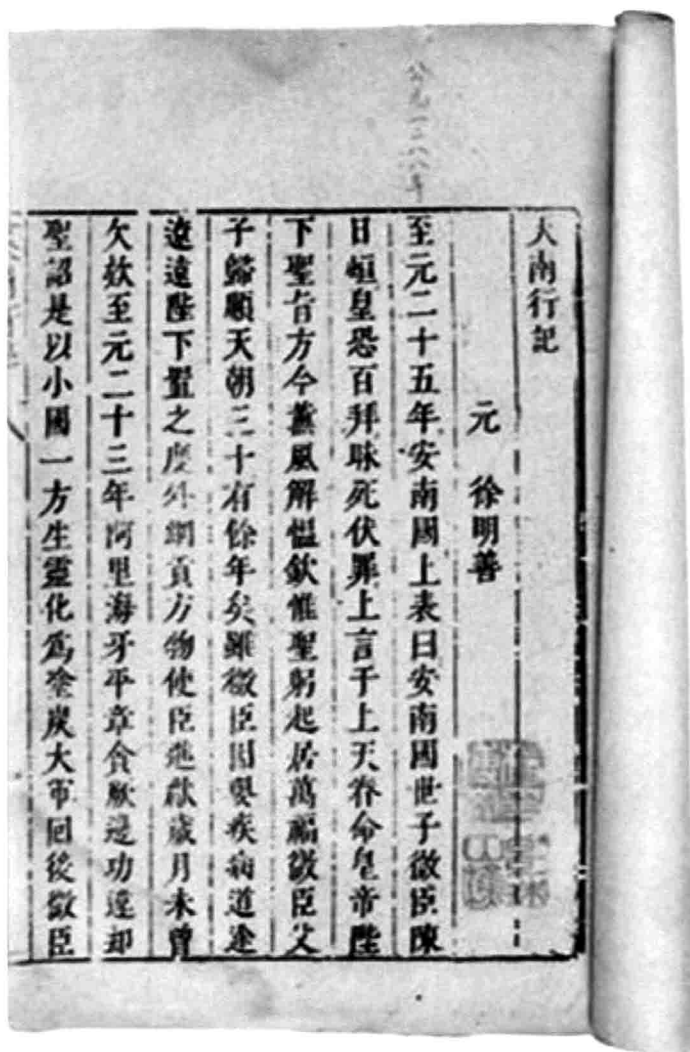 公元一二八八年
天南行記
元 徐明善
至元二十五年安南國上表曰安南國世子微臣陳
日烜皇恐百拜昧死伏罪上言于上天眷命皇帝陛
下聖旨方今薰風解慍欽惟聖躬起居萬福微臣父
子歸順天朝三十有餘年矣雖微臣因嬰疾病道途
遼遠陛下置之度外綱貢方物使臣進獻歲月未曾
欠缺至元二十三年阿里海牙平章貪厭邊功違却
聖詔是以小國一方生靈化爲塗炭大軍回後微臣